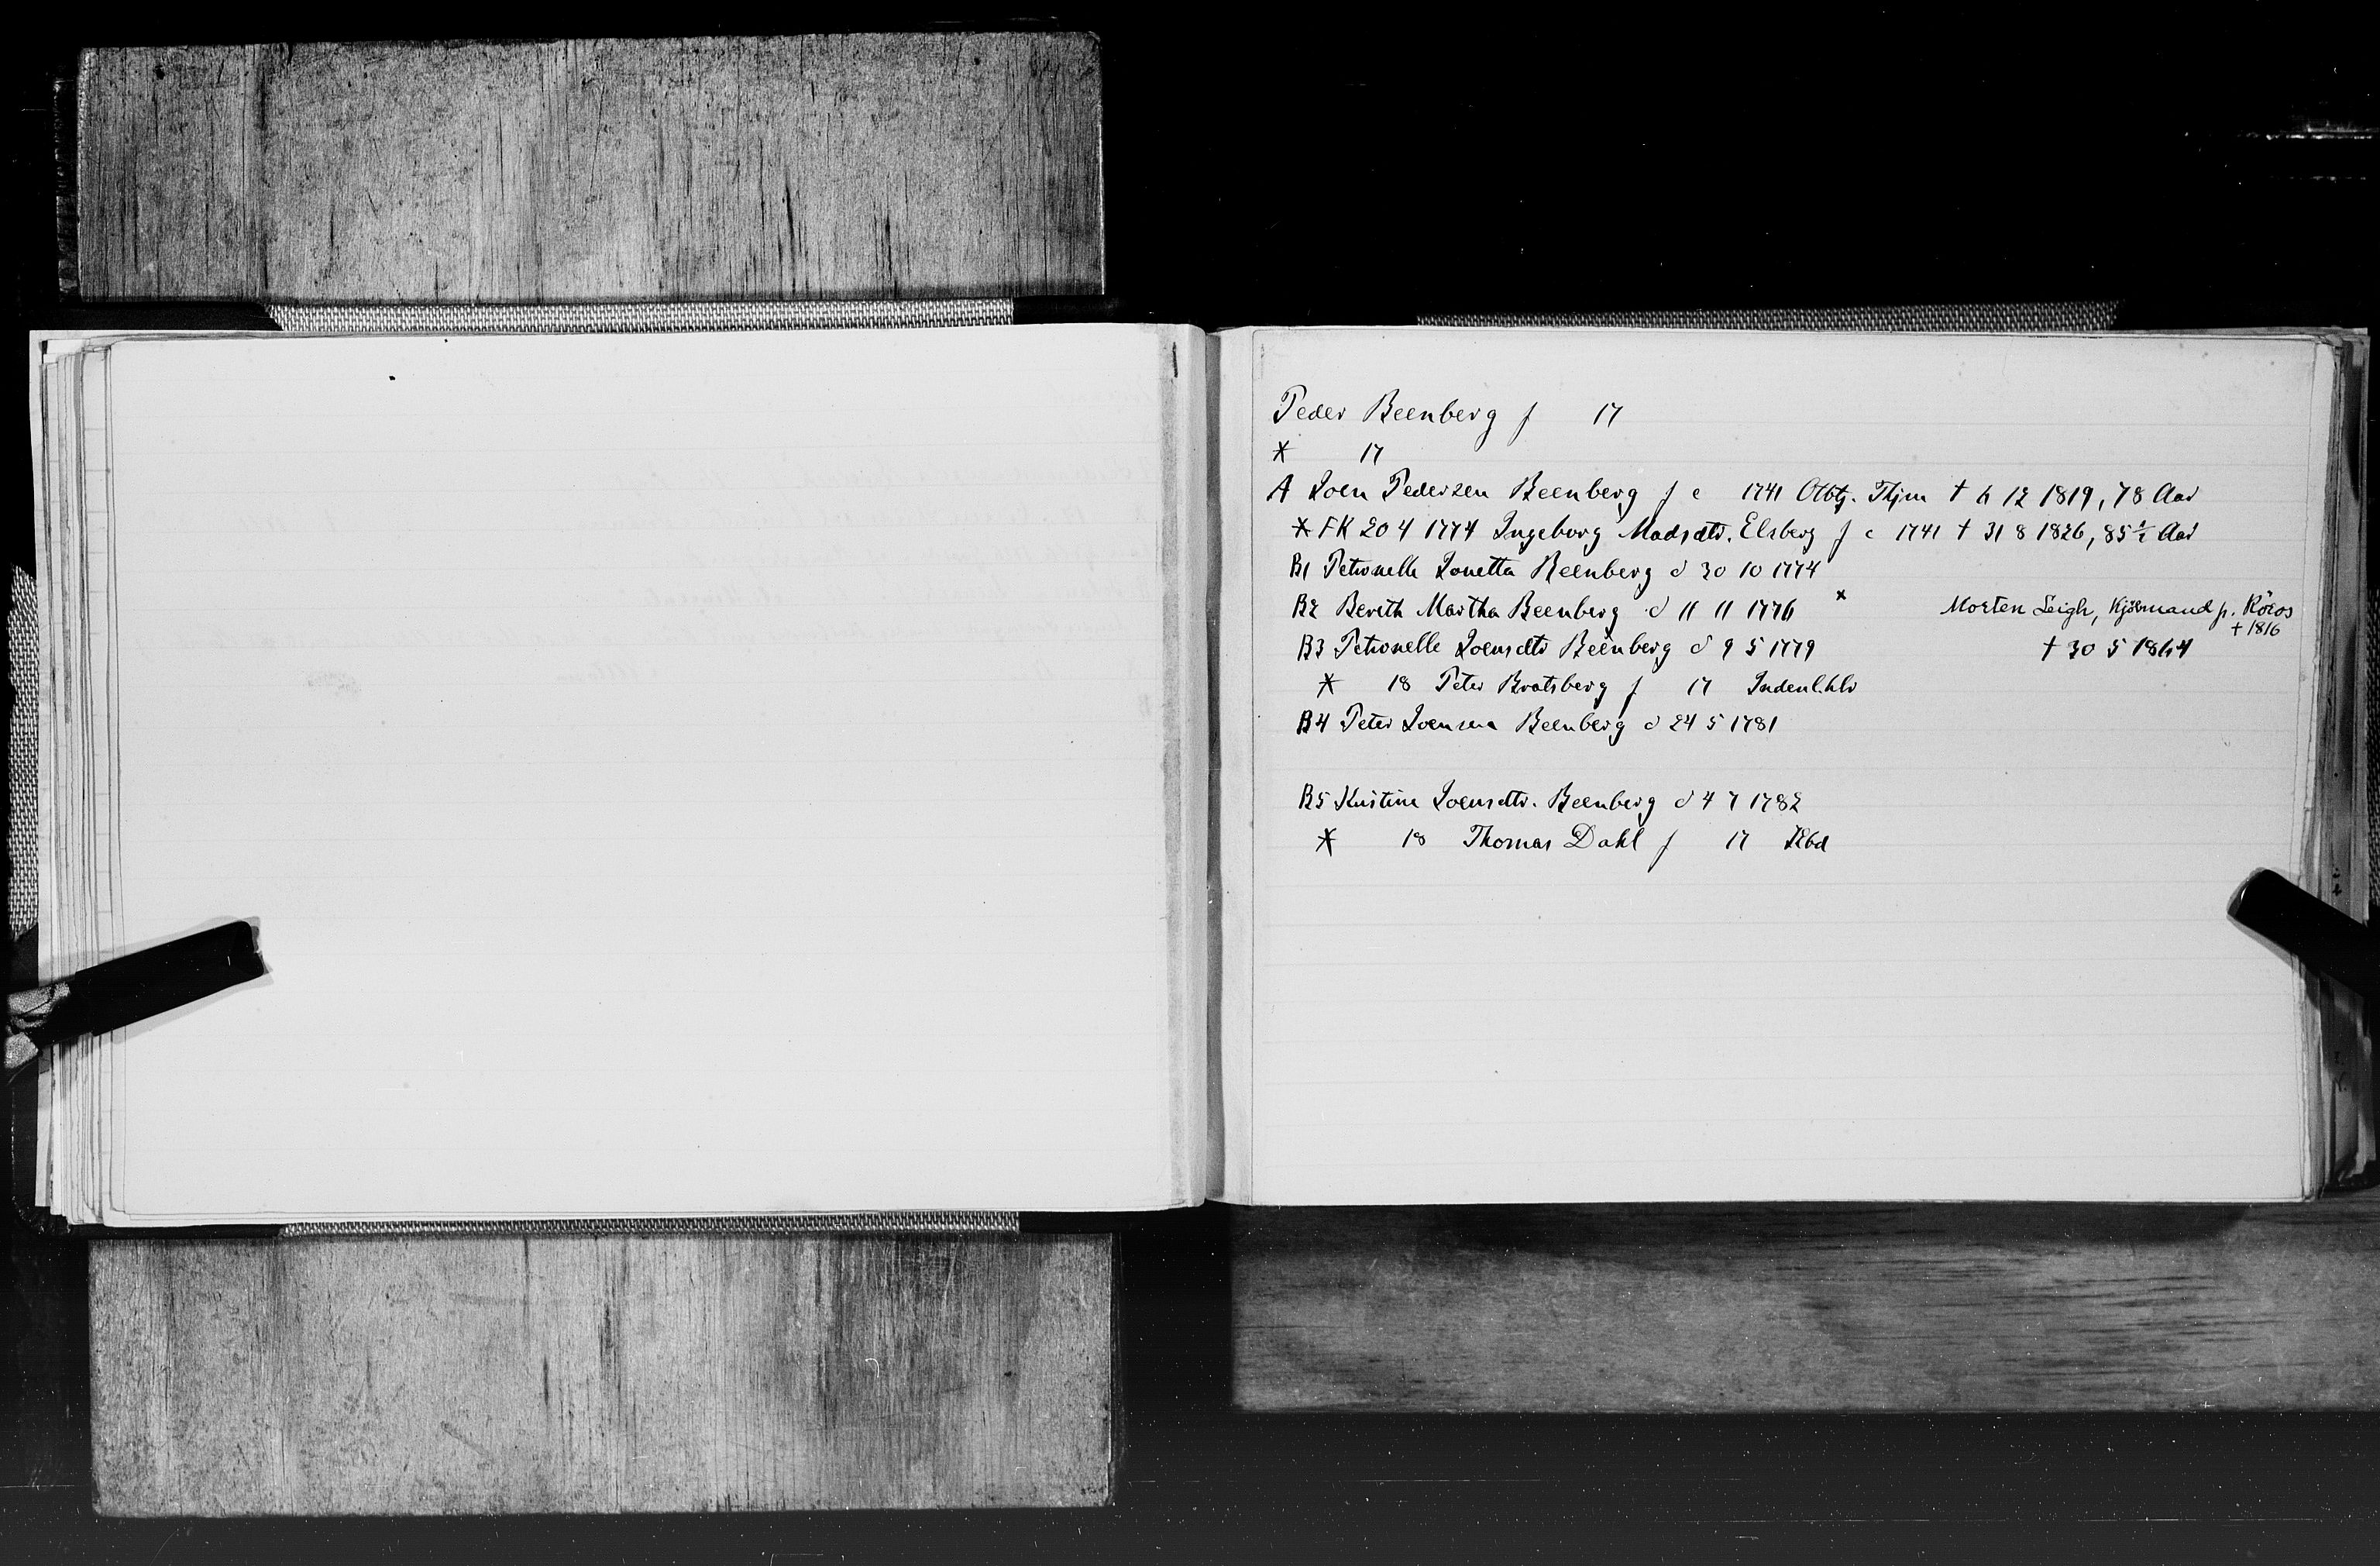 Peder Beenberg f 17
* 17
A Joen Pedersen Beenberg f c 1741 Olbtj. Thjm † 6 12 1819, 78 Aar
* FK 20 4 1774 Ingeborg Madsdtr. Elsberg f c 1741 † 31 8 1826, 85 1/2 Aar
B1 Petronelle Jonetta Beenberg d 30 10 1774
B2 Bereth Martha Beenberg d 11 11 1776 * Morten Leigh, Kjöbmand p. Röros † 1816
B3 Petronelle Joensdtr Beenberg d 9 5 1779 † 30 5 1864
* 18 Peter Bratsberg f 17 Indenl.hlr
B4 Peter Joensen Beenberg d 24 5 1781
B5 Kristine Joensdtr. Beenberg d 4 7 1782
* 18 Thomas Dahl f 17